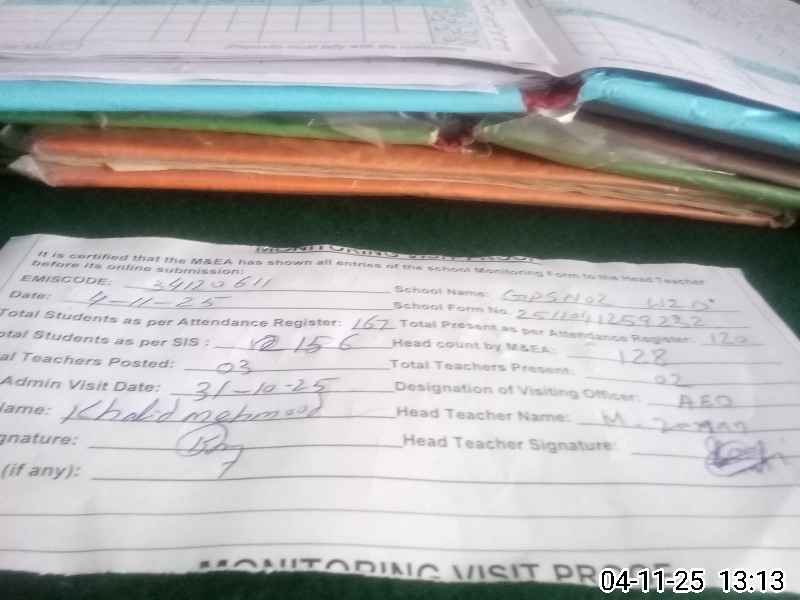 MONITORING VISIT PROOF
It is certified that the M&EA has shown all entries of the school Monitoring Form to the Head Teacher
before its online submission:
EMISCODE: 34120611 School Name: GPS No2
Date: 4-11-25 School Form No.
Total Students as per Attendance Register: 167 Total Present as per Attendance Register: 120
otal Students as per SIS : 156 Head count by M&EA: 128
al Teachers Posted: 03 Total Teachers Present: 02
Admin Visit Date: 31-10-25 Designation of Visiting Officer: AEO
Name: Khalid mehmood Head Teacher Name: M.
gnature: Head Teacher Signature:
(if any):
MONITORING VISIT PROOF
04-11-25 13:13